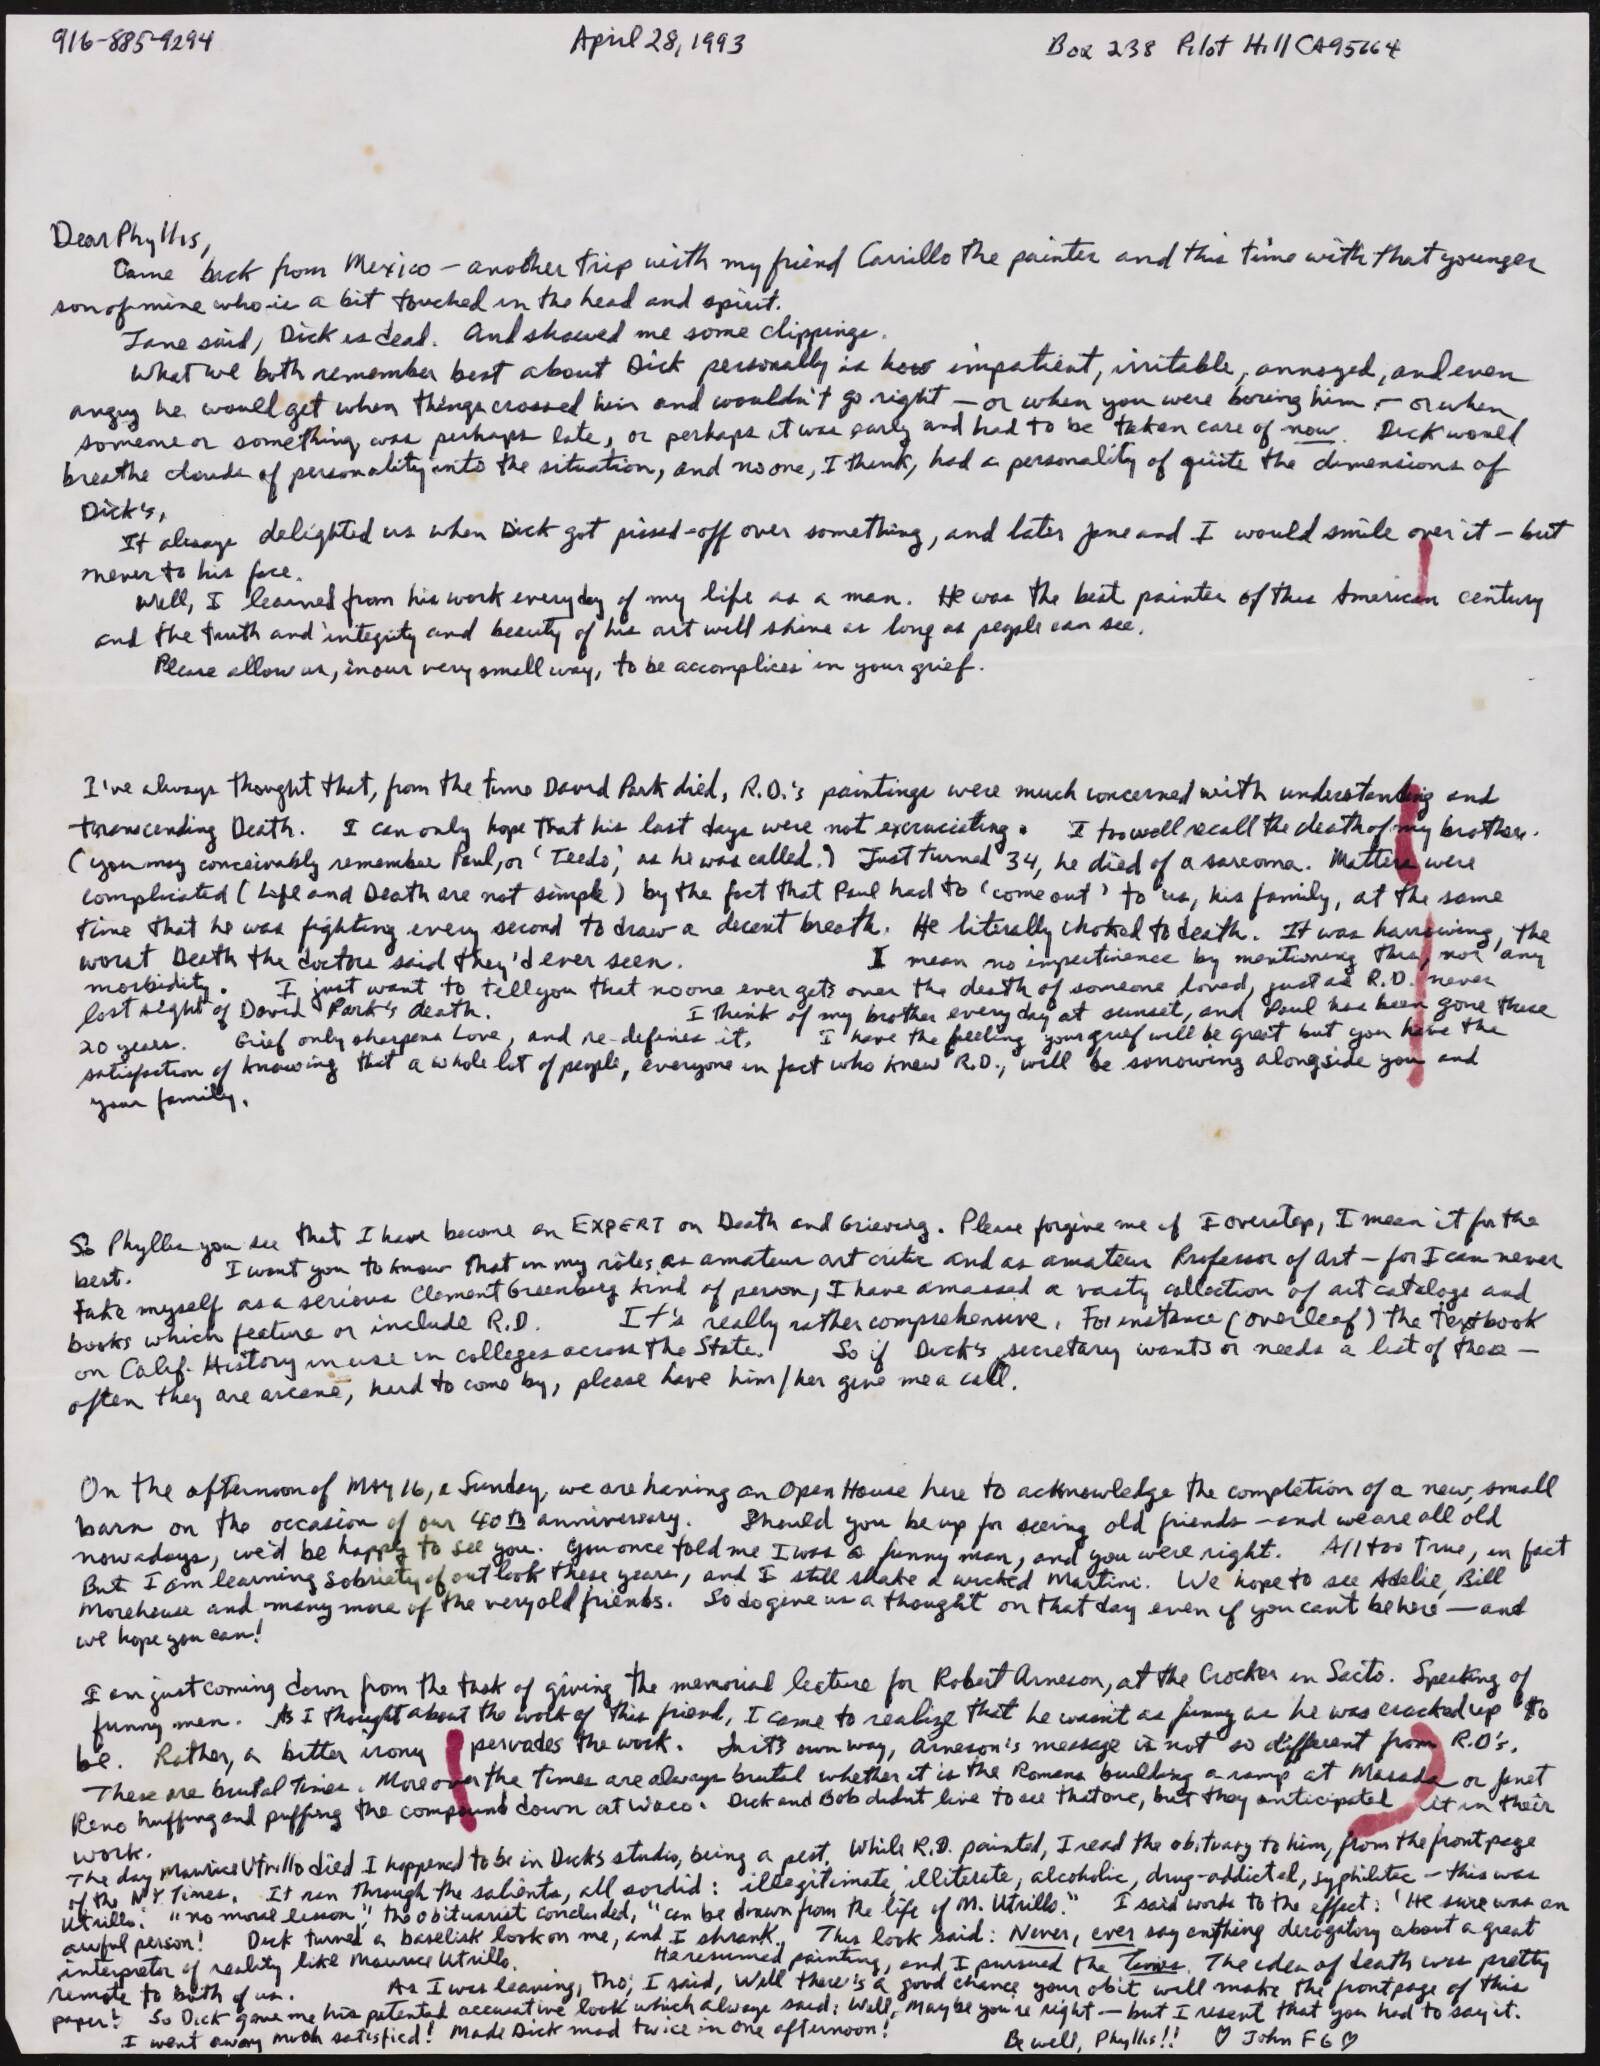 916-885-9294 April 28, 1993 Box 238 Pilot Hill CA 95664
Dear Phyllis,
Came back from Mexico — another trip with my friend Carrillo the painter and this time with that younger
son of mine who is a bit touched in the head and spirit.
Jane said, Dick is dead. And showed me some clippings.
What we both remember best about Dick personally is how impatient, irritable, annoyed, and even
angry he would get when things crossed him and wouldn't go right — or when you were boring him — or when
someone or something was perhaps late, or perhaps it was early and had to be taken care of now. Dick would
breathe clouds of personality into the situation, and no one, I think, had a personality of quite the dimensions of
Dick's.
It always delighted us when Dick got pissed-off over something, and later Jane and I would smile over it — but
never to his face.
Well, I learned from his work every day of my life as a man. He was the best painter of this American century
and the truth and integrity and beauty of his art will shine as long as people can see.
Please allow us, in our very small way, to be accomplices in your grief.
I've always thought that, from the time David Park died, R.D.'s paintings were much concerned with understanding and
transcending Death. I can only hope that his last days were not excruciating. I too well recall the death of my brother.
(you may conceivably remember Paul, or 'Teedo,' as he was called.) Just turned 34, he died of a sarcoma. Matters were
complicated (Life and Death are not simple) by the fact that Paul had to 'come out' to us, his family, at the same
time that he was fighting every second to draw a decent breath. He literally choked to death. It was harrowing, the
worst Death the doctors said they'd ever seen. I mean no impertinence by mentioning this, nor any
morbidity. I just want to tell you that no one ever gets over the death of someone loved, just as R.D. never
lost sight of David Park's death. I think of my brother every day at sunset, and Paul has been gone these
20 years. Grief only sharpens Love, and re-defines it. I have the feeling your grief will be great but you have the
satisfaction of knowing that a whole lot of people, everyone in fact who knew R.D., will be sorrowing alongside you and
your family.
So Phyllis you see that I have become an EXPERT on Death and Grieving. Please forgive me if I overstep, I mean it for the
best. I want you to know that in my rôles as amateur art critic and as amateur Professor of Art — for I can never
take myself as a serious Clement Greenberg kind of person, I have amassed a vasty collection of art catalogs and
books which feature or include R.D. It's really rather comprehensive. For instance (overleaf) the textbook
on Calif. History in use in colleges across the State. So if Dick's secretary wants or needs a list of these —
often they are arcane, hard to come by, please have him/her give me a call.
On the afternoon of May 16, a Sunday, we are having an Open House here to acknowledge the completion of a new, small
barn on the occasion of our 40th anniversary. Should you be up for seeing old friends — and we are all old
nowadays, we'd be happy to see you. You once told me I was a funny man, and you were right. All too true, in fact
But I am learning sobriety of outlook these years, and I still shake a wicked Martini. We hope to see Adelie, Bill
Morehouse and many more of the very old friends. So do give us a thought on that day even if you can't be here — and
we hope you can!
I am just coming down from the task of giving the memorial lecture for Robert Arneson, at the Crocker in Sacto. Speaking of
funny men. As I thought about the work of this friend, I came to realize that he wasn't as funny as he was cracked up to
be. Rather, a bitter irony pervades the work. In its own way, Arneson's message is not so different from R.D's.
These are brutal times. Moreover the times are always brutal whether it is the Romans building a ramp at Masada or Janet
Reno huffing and puffing the compound down at Waco. Dick and Bob didn't live to see that one, but they anticipated it in their
work.
The day Maurice Utrillo died I happened to be in Dick's studio, being a pest. While R.D. painted, I read the obituary to him, from the front page
of the N.Y. Times. It ran through the salients, all sordid: illegitimate, illiterate, alcoholic, drug-addicted, syphilitic — this was
Utrillo. "no moral lesson", the obituarist concluded, "can be drawn from the life of M. Utrillo." I said words to the effect: 'He sure was an
awful person! Dick turned a baselisk look on me, and I shrank. This look said: Never, ever say anything derogatory about a great
interpretor of reality like Maurice Utrillo. He resumed painting, and I pursued the Times. The idea of death was pretty
remote to both of us. As I was leaving, tho, I said, Well there's a good chance your obit will make the front page of this
paper! So Dick gave me his patented accusative look which always said: Well, maybe you're right — but I resent that you had to say it.
I went away much satisfied! Made Dick mad twice in one afternoon! Be well, Phyllis!! ♡ John FG ♡